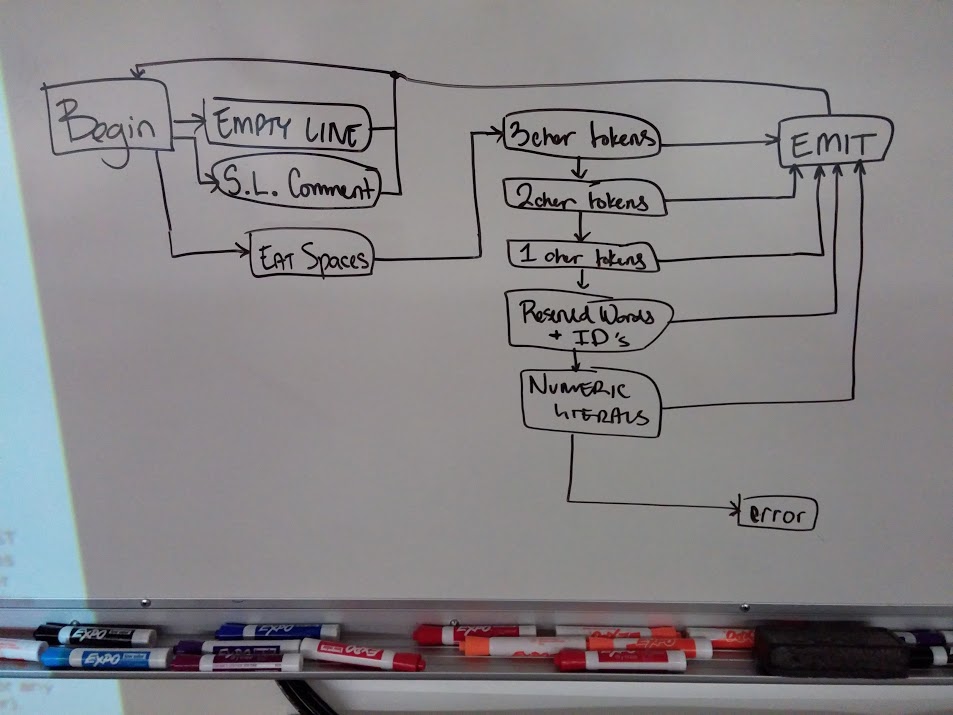 Begin
EMPTY LINE
S.L. Comment
EAT Spaces
3 char tokens
2 char tokens
1 char tokens
Reserved Words
+ ID's
NUMERIC
LITERALS
EMIT
error
EXPO
EXPO
EXPO
EXPO
EXPO
EXPO
EXPO
EXPO
EXPO